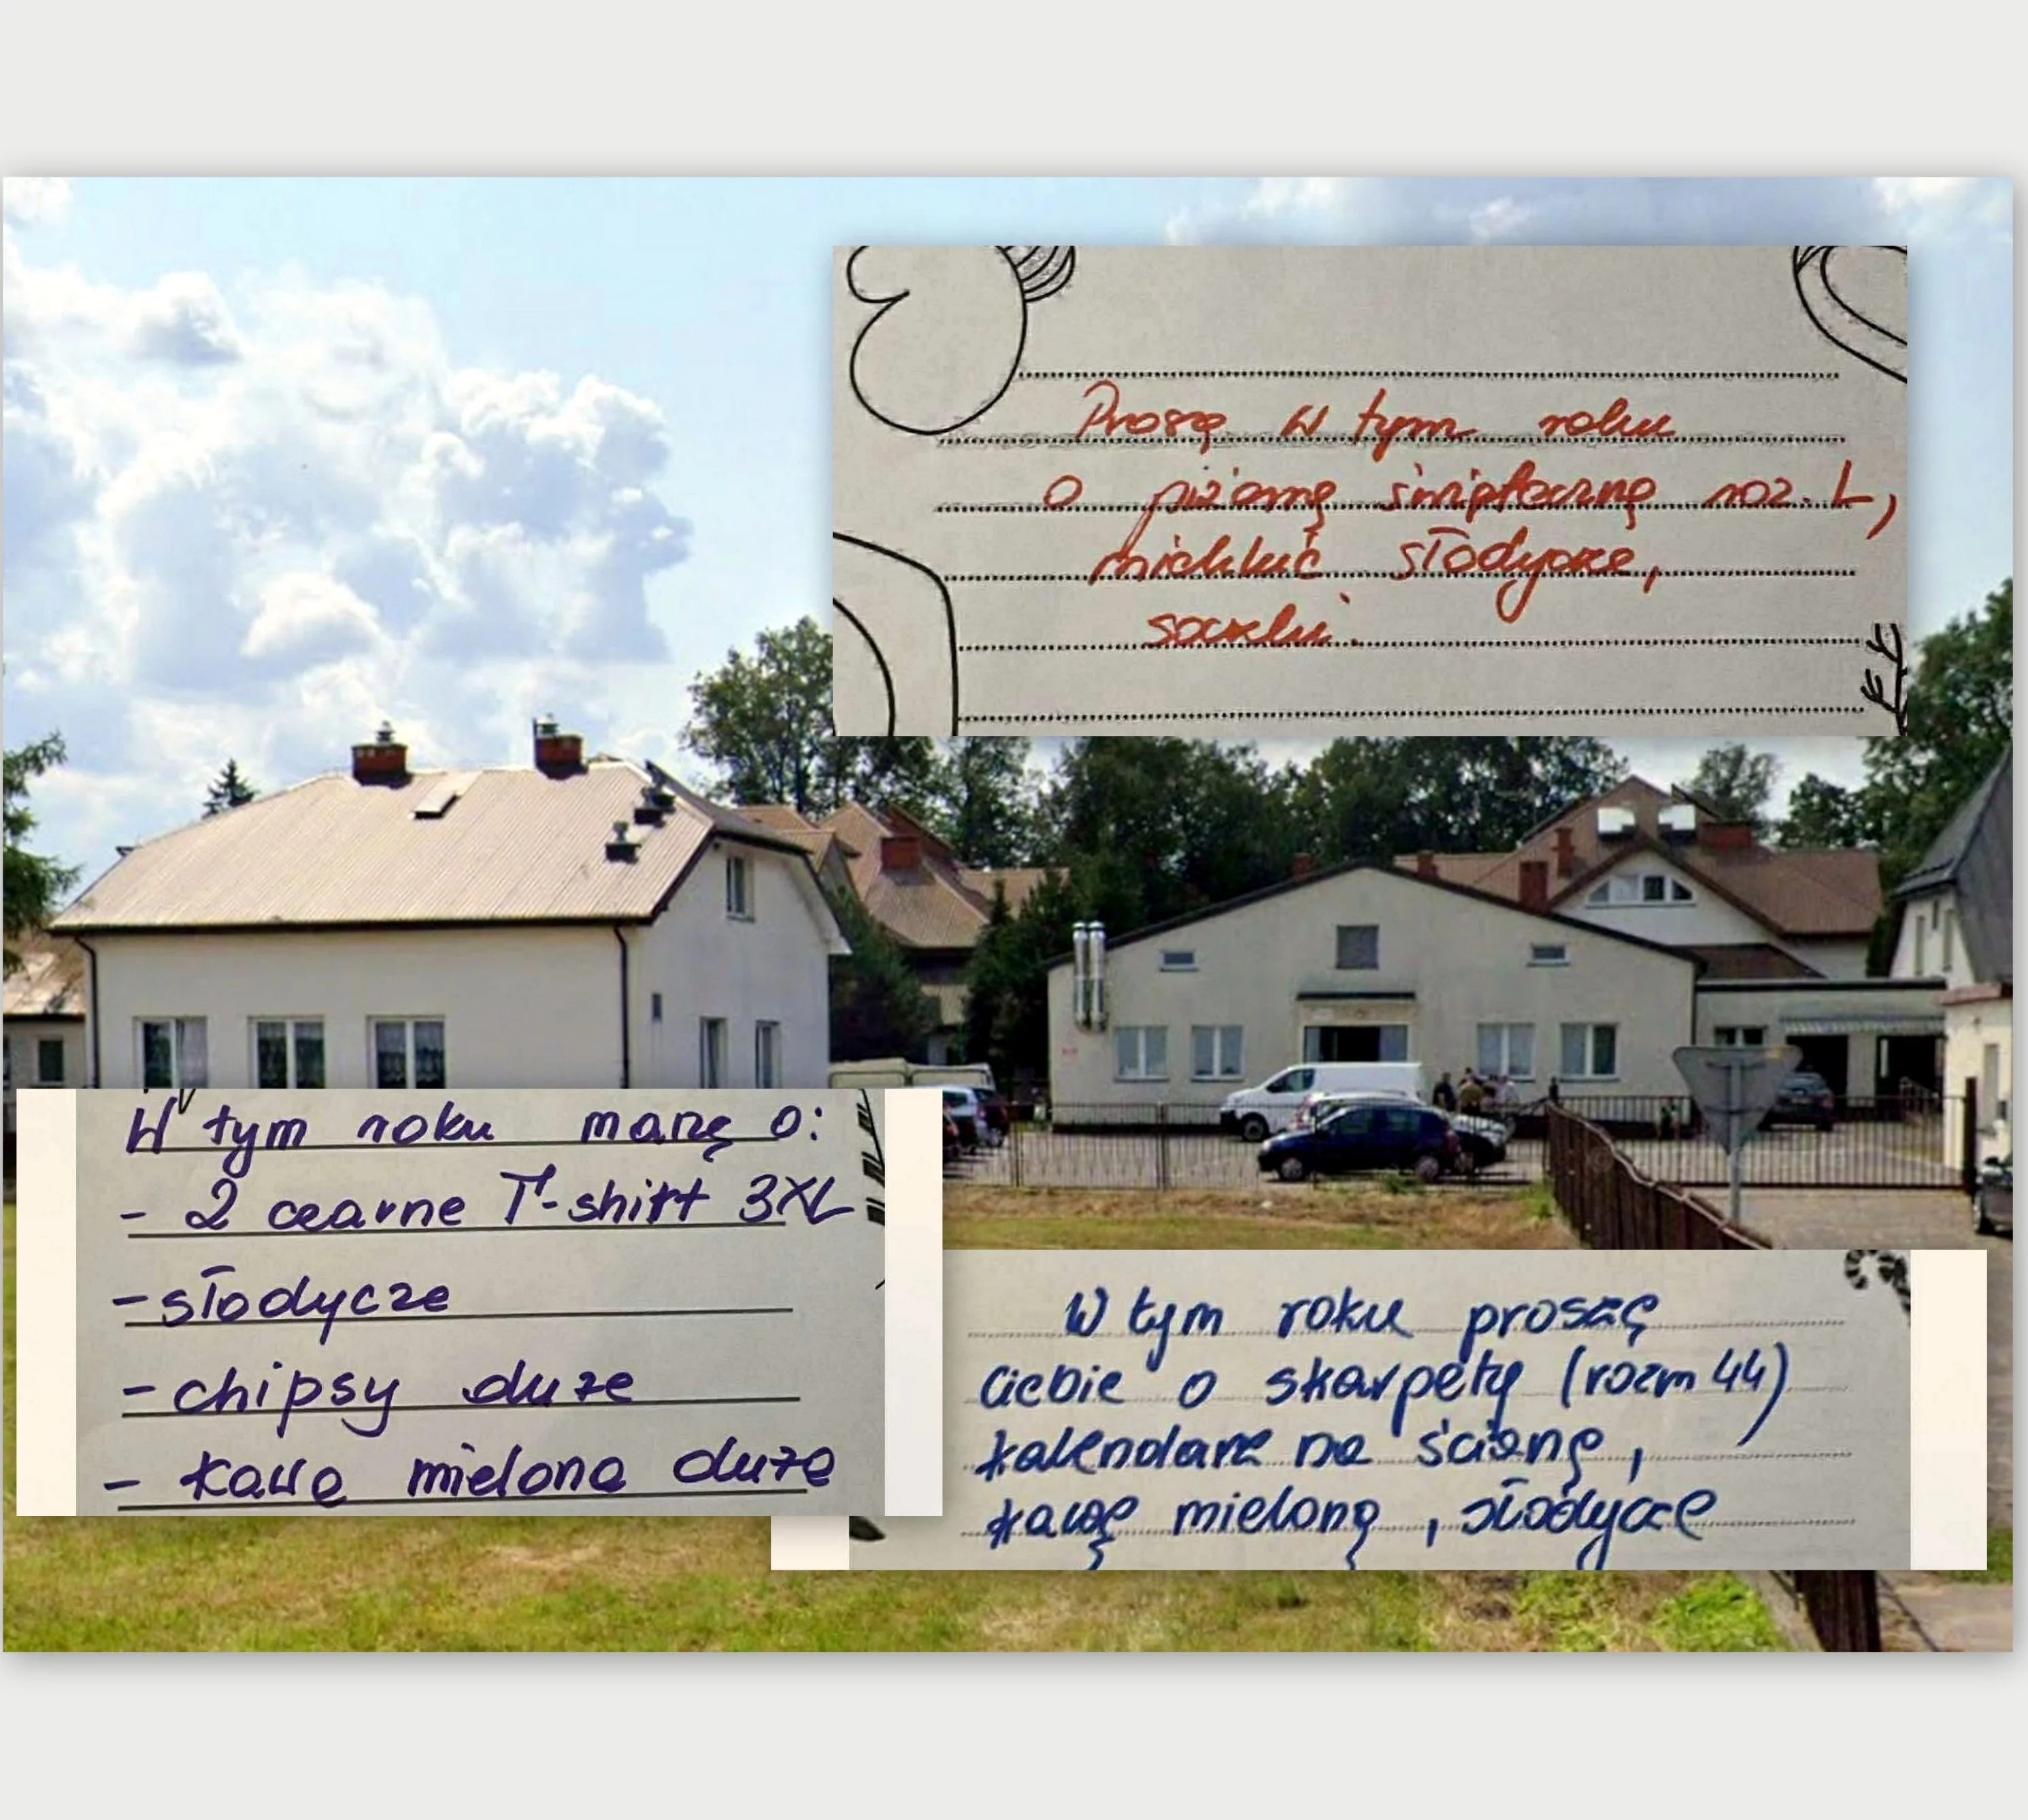 Proszę w tym roku
o piżamę świąteczną roz. L,
miękkie słodycze,
soczki.
W tym roku marzę o:
- 2 czarne T-shirt 3XL
- słodycze
- chipsy duże
- kawa mielona duża
W tym roku proszę
Ciebie o skarpety (rozm 44)
kalendarz na ścianę,
kawę mieloną, słodycze